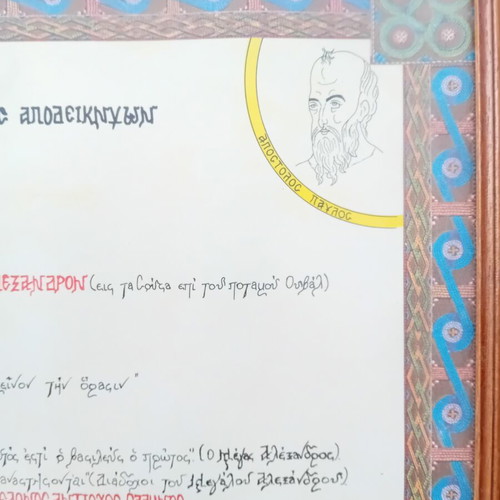 ς ΑΠΟΔΕΙΚΝΥΩΝ
ΑΠΟCΤΟΛΟC ΠΑΥΛΟC
ΛΕΞΑΝΔΡΟΝ (εις τα Σούσα επί του ποταμού Ουβάλ)
εῖνον τὴν ὅρασιν"
ἐστὶ ὁ βασιλεὺς ὁ πρῶτος". (Ο Μέγας Αλέξανδρος)
(Διάδοχοι του Μεγάλου Αλεξάνδρου)
ΑΝΤΙΟΧΟΣ